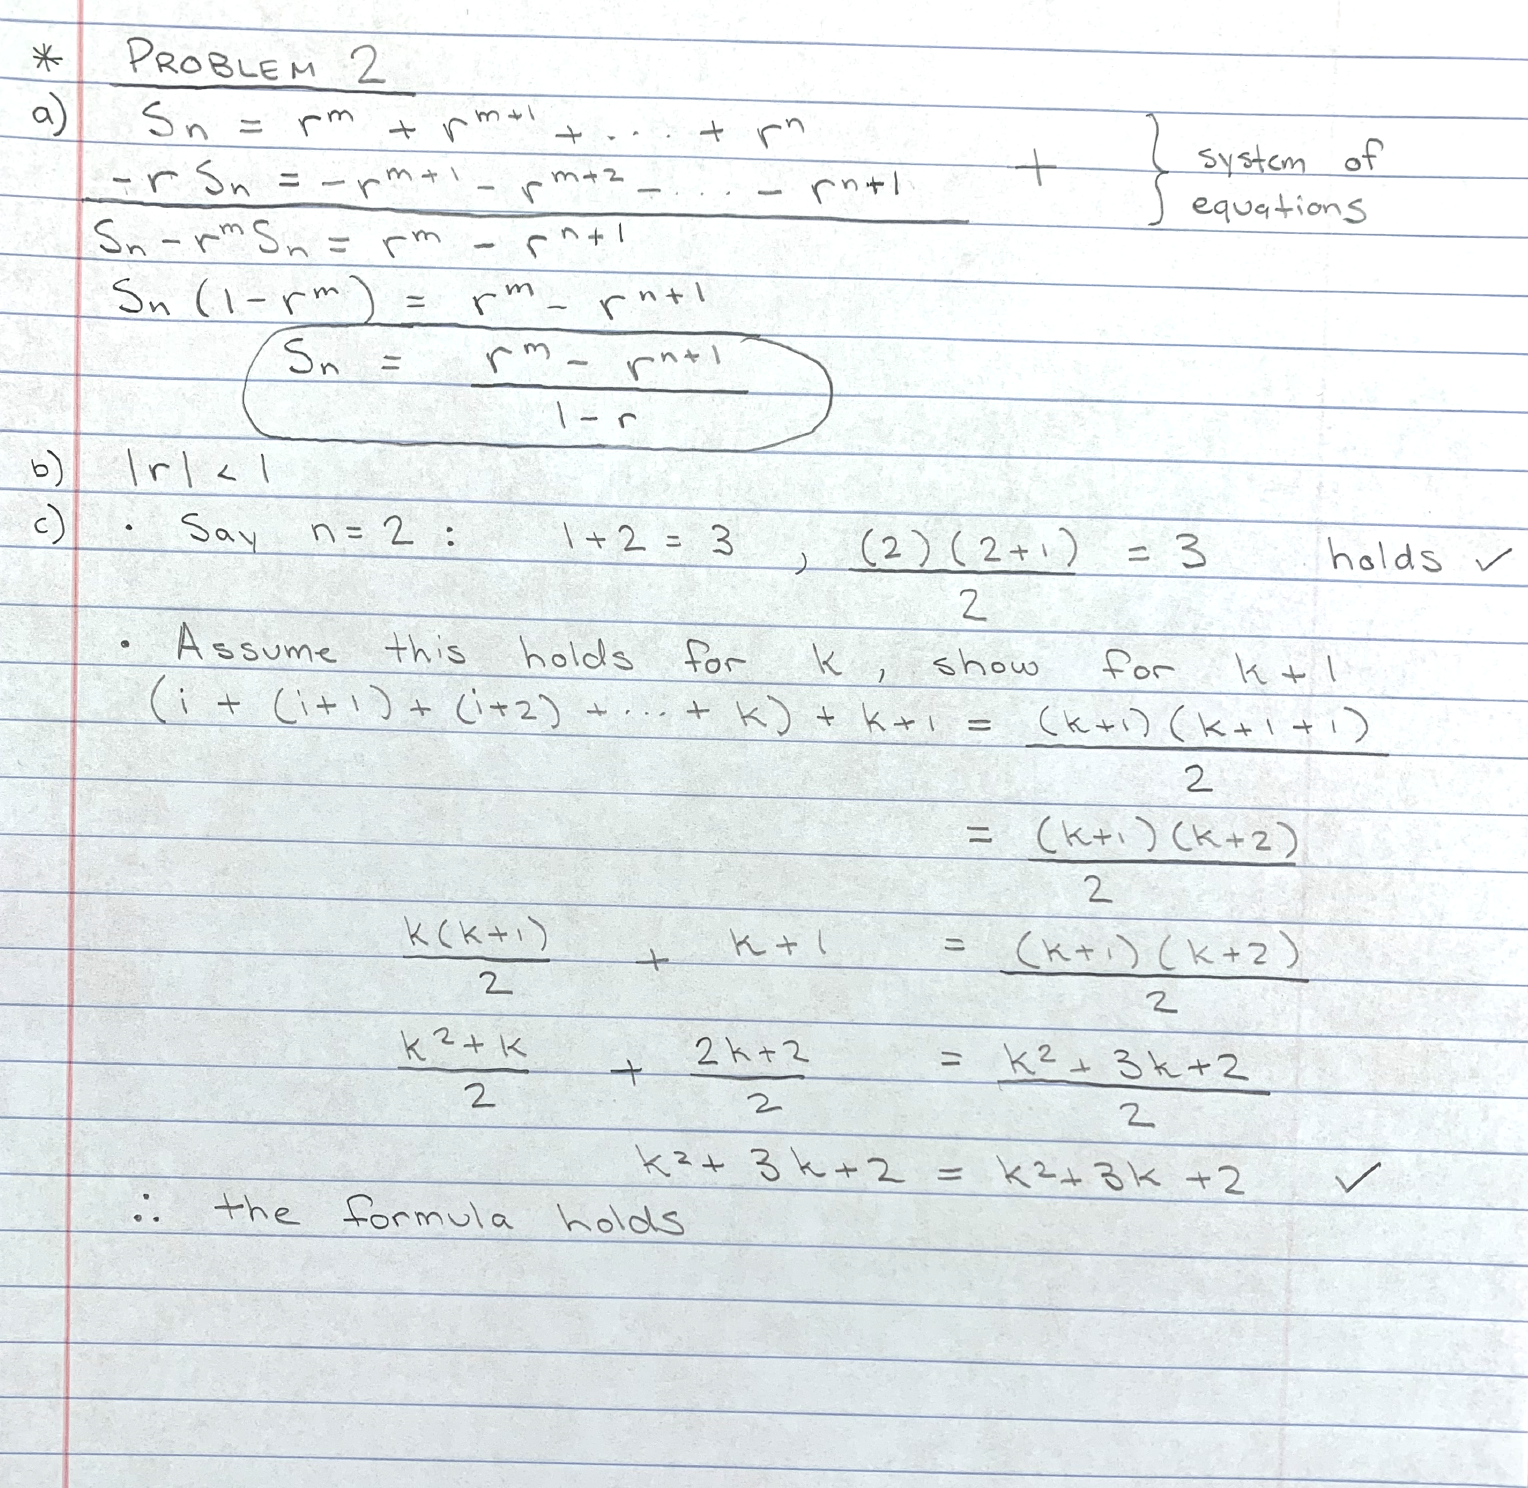 * PROBLEM 2
a) Sₙ = rᵐ + rᵐ⁺¹ + .... + rⁿ
-r Sₙ = -rᵐ⁺¹ - rᵐ⁺² - .... - rⁿ⁺¹ + } system of equations
Sₙ - rᵐSₙ = rᵐ - rⁿ⁺¹
Sₙ (1-rᵐ) = rᵐ - rⁿ⁺¹
Sₙ = (rᵐ - rⁿ⁺¹)/(1-r)
b) |r| < 1
c) • Say n=2 : 1+2 = 3 , (2)(2+1)/2 = 3 holds ✓
• Assume this holds for k, show for k+1
(i + (i+1) + (i+2) + ... + k) + k+1 = (k+1)(k+1+1)/2
= (k+1)(k+2)/2
k(k+1)/2 + k+1 = (k+1)(k+2)/2
(k²+k)/2 + (2k+2)/2 = (k²+3k+2)/2
k²+3k+2 = k²+3k+2 ✓
∴ the formula holds